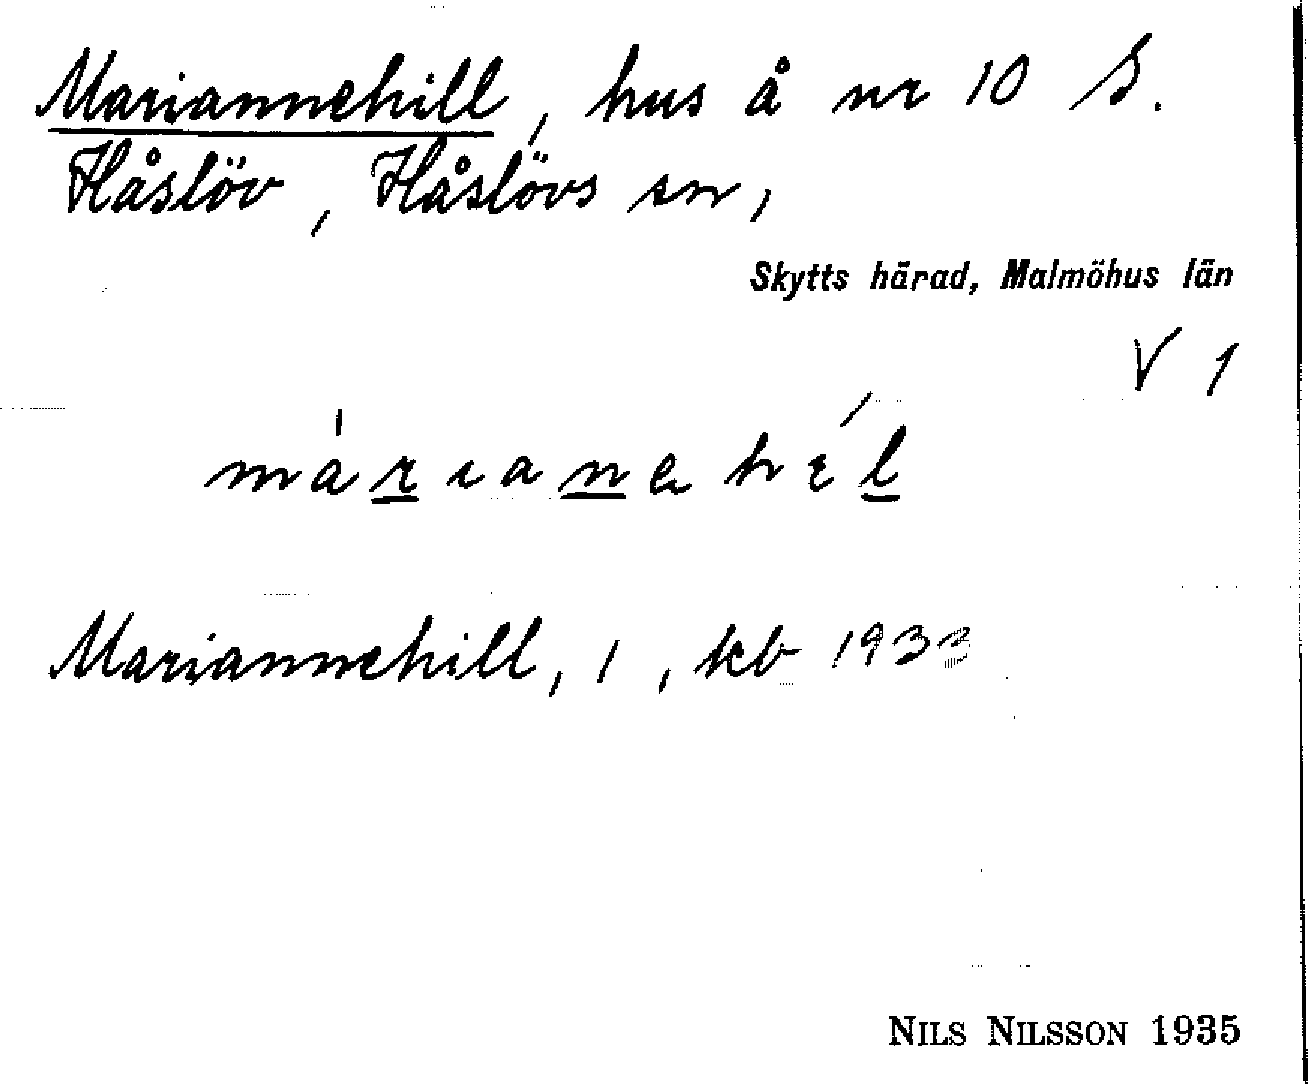 Mariannehill, hus å nr 10 S.
Håslöv, Håslövs sn,
Skytts härad, Malmöhus län
V 1
màrıanehɛ́l
Mariannehill, 1, kb 1933
NILS NILSSON 1935